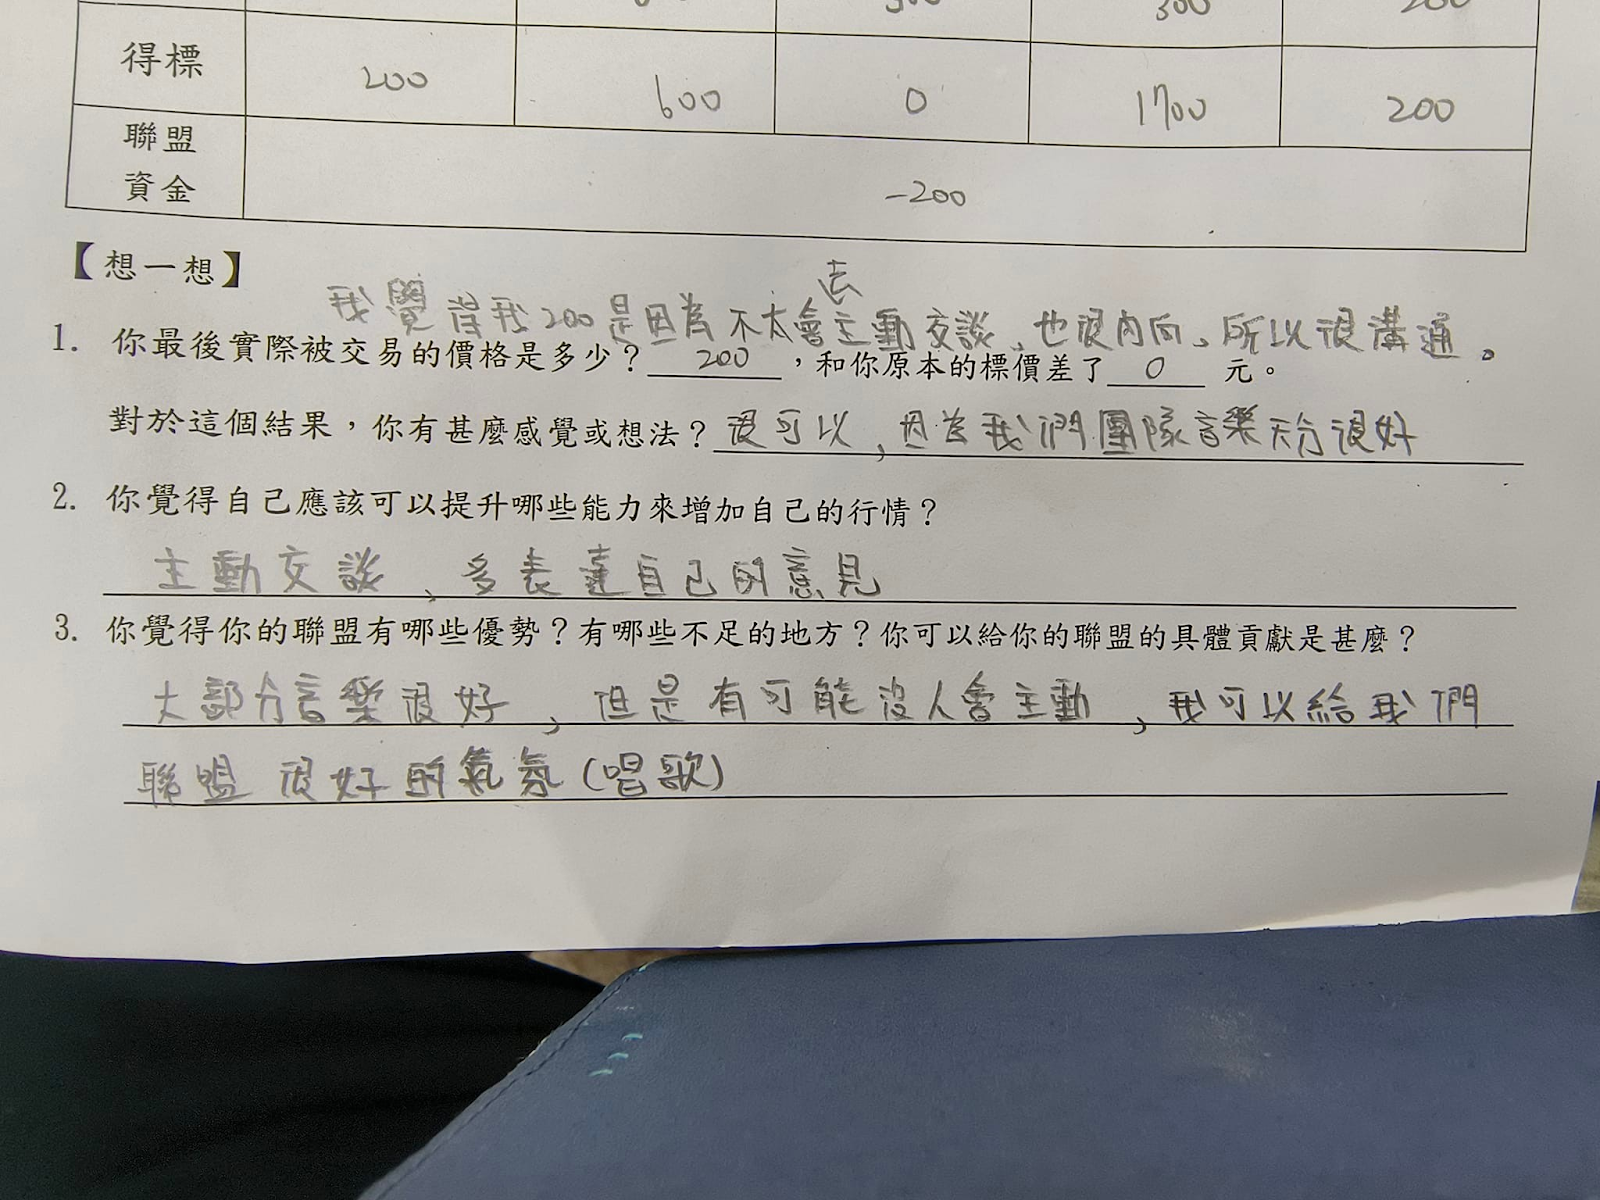 得標 200 600 0 1700 200
聯盟資金 -200
【想一想】
去
我覺得我200是因為不太會主動交談、也很內向、所以很溝通。
1. 你最後實際被交易的價格是多少？200，和你原本的標價差了0元。
對於這個結果，你有甚麼感覺或想法？很可以，因為我們團隊音樂天分很好
2. 你覺得自己應該可以提升哪些能力來增加自己的行情？
主動交談、多表達自己的意見
3. 你覺得你的聯盟有哪些優勢？有哪些不足的地方？你可以給你的聯盟的具體貢獻是甚麼？
大部分音樂很好，但是有可能沒人會主動，我可以給我們
聯盟很好的氣氛(唱歌)